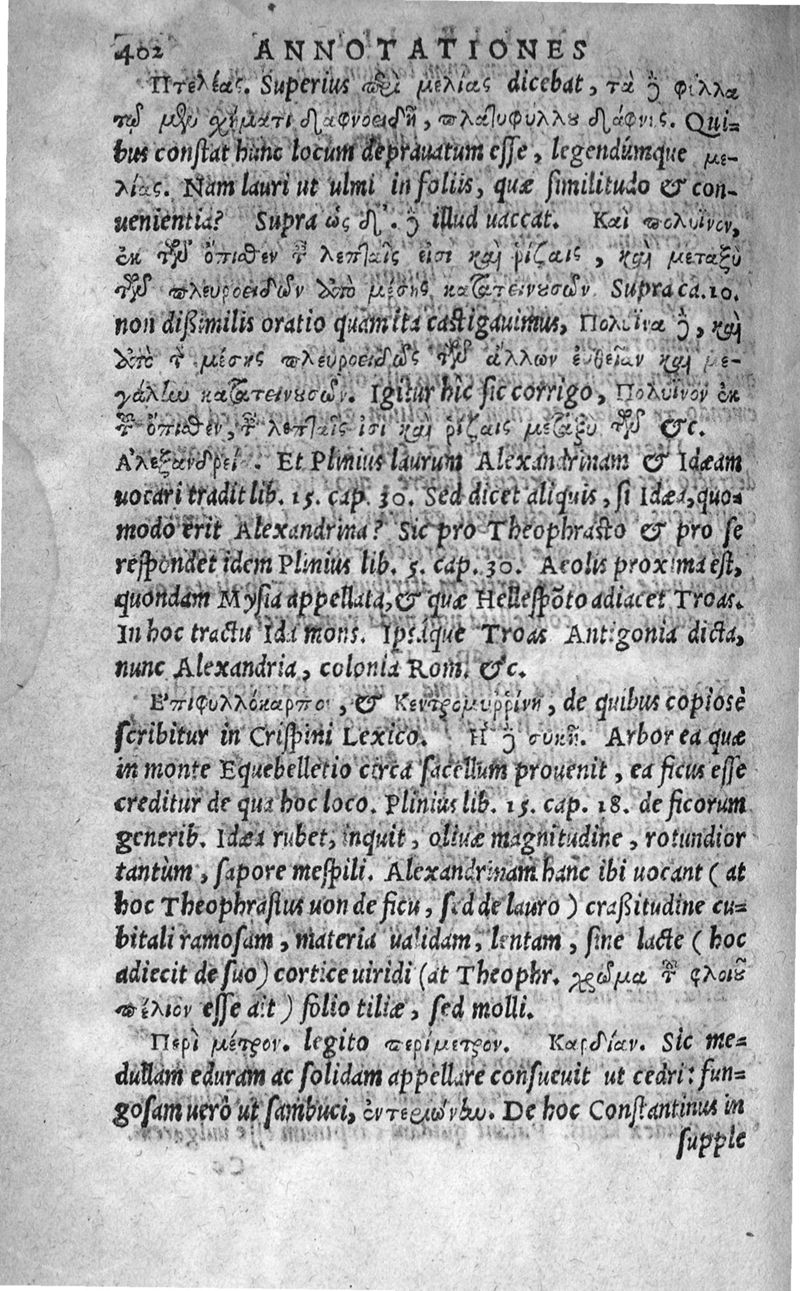 402 ANNOTATIONES
Πτελέας. Superius περὶ μελίας dicebat, τὰ ἢ φύλλα
τῷ μὲν χήματι δαφνοειδῆ, πλατυφύλλου δάφνης. Qui-
bus constat hunc locum deprauatum esse, legendúmque με-
λίας. Nam lauri ut ulmi in foliis, quæ similitudo & con-
uenientia? Supra ὡς δ'. ἢ illud uaccat. Καὶ πολύϊνον,
ἐκ τῶν ὄπιθεν τ λεπταῖς εἰσὶ καὶ ῥίζαις, καὶ μεταξὺ
τῶν πλευροειδῶν ἀπὸ μέσης κατατεινουσῶν. Supra ca. 10.
non dißimilis oratio quam ita castigauimus, Πολύϊνα ἢ, καὶ
ἀπὸ τ μέσης πλευροειδῶς τῶν ἄλλων εὐθεῖαν καὶ με-
γάλην κατατεινουσῶν. Igitur hîc sic corrigo, Πολύϊνον ἐκ
τ ὄπιθεν, τ λεπταῖς ἰσὶ καὶ ῥίζαις μεταξὺ τῶν &c.
Αλεξανδρεί. Et Plinius laurum Alexandrinam & Idæam
uocari tradit lib. 15. cap. 30. Sed dicet aliquis, si Idæa, quo-
modo erit Alexandrina? Sic pro Theophrasto & pro se
respondet idem Plinius lib. 5. cap. 30. Aeolis proxima est,
quondam Mysia appellata, & quæ Hellespõto adiacet Troas.
In hoc tractu Ida mons. Ipsáque Troas Antigonia dicta,
nunc Alexandria, colonia Rom. &c.
Επιφυλλόκαρποι, & Κεντρομυῤῥίνη, de quibus copiosè
scribitur in Crispini Lexico. Η ἢ συκῆ. Arbor ea quæ
in monte Equebelletio circa sacellum prouenit, ea ficus esse
creditur de qua hoc loco. Plinius lib. 15. cap. 18. de ficorum
generib. Idæa rubet, inquit, oliuæ magnitudine, rotundior
tantùm, sapore mespili. Alexandrinam hanc ibi uocant (at
hoc Theophrastus uon de ficu, sed de lauro) craßitudine cu-
bitali ramosam, materia ualidam, lentam, sine lacte (hoc
adiecit de suo) cortice uiridi (at Theophr. χρῶμα τ φλοιοῦ
πέλιον esse ait) folio tiliæ, sed molli.
Περὶ μέτρον. legito περίμετρον. Καρδίαν. Sic me-
dullam eduram ac solidam appellare consueuit ut cedri: fun-
gosam uerò ut sambuci, ἐντεριώνην. De hoc Constantinus in
supple